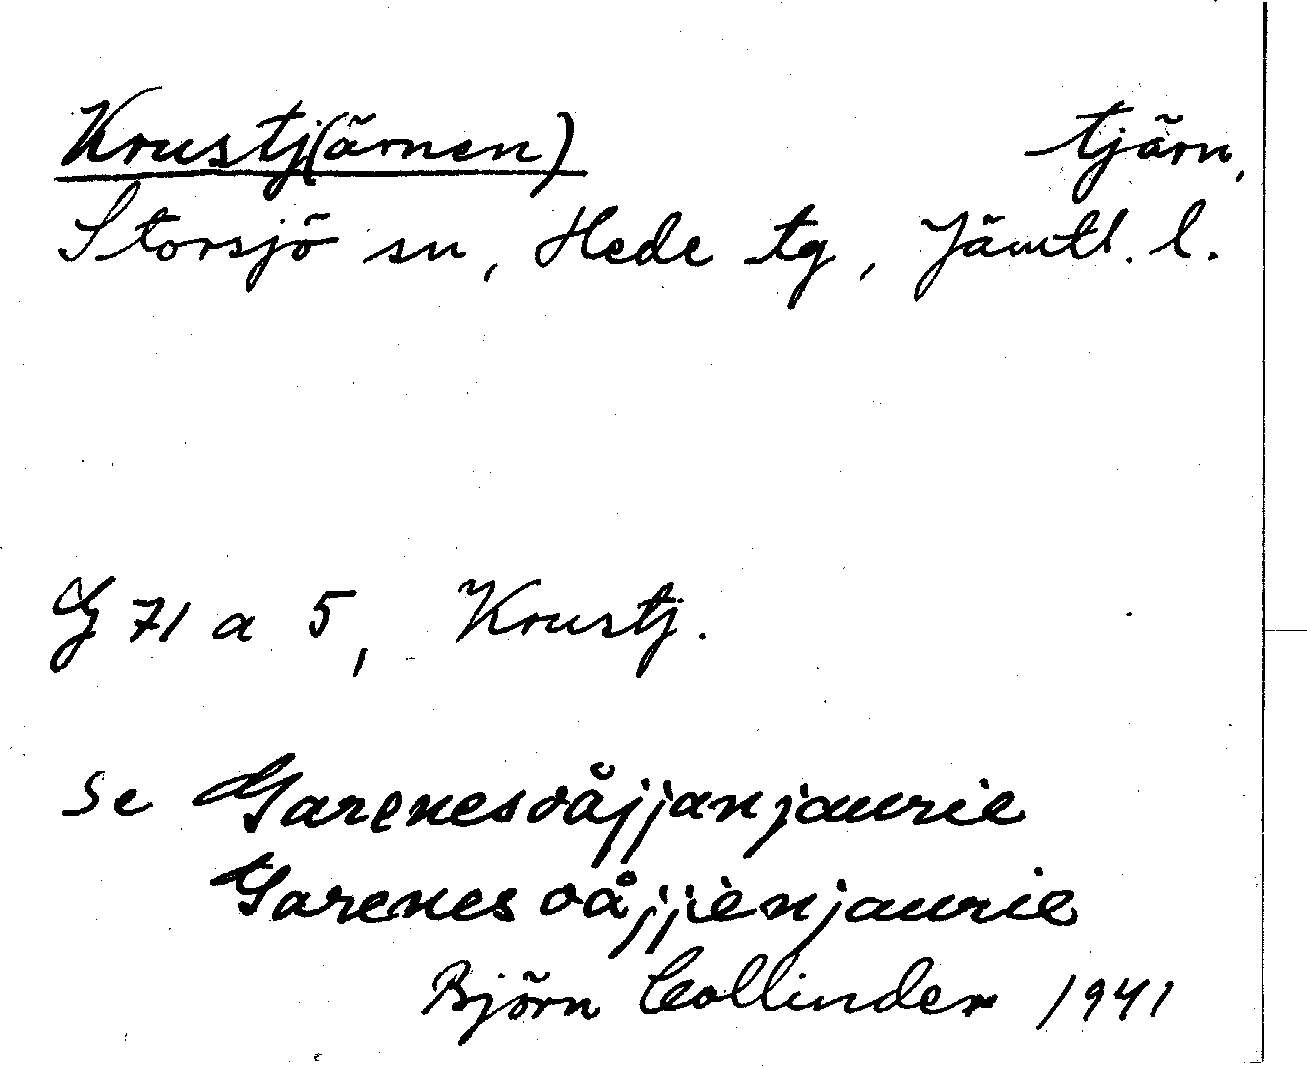 Krustj(ärnen) tjärn,
Storsjö sn, Hede tg, Jämtl. l.
G 71 a 5, Krustj.
Se Garenesoåjjanjaurie
Garenesoåjjienjaurie
Björn Collinder 1941